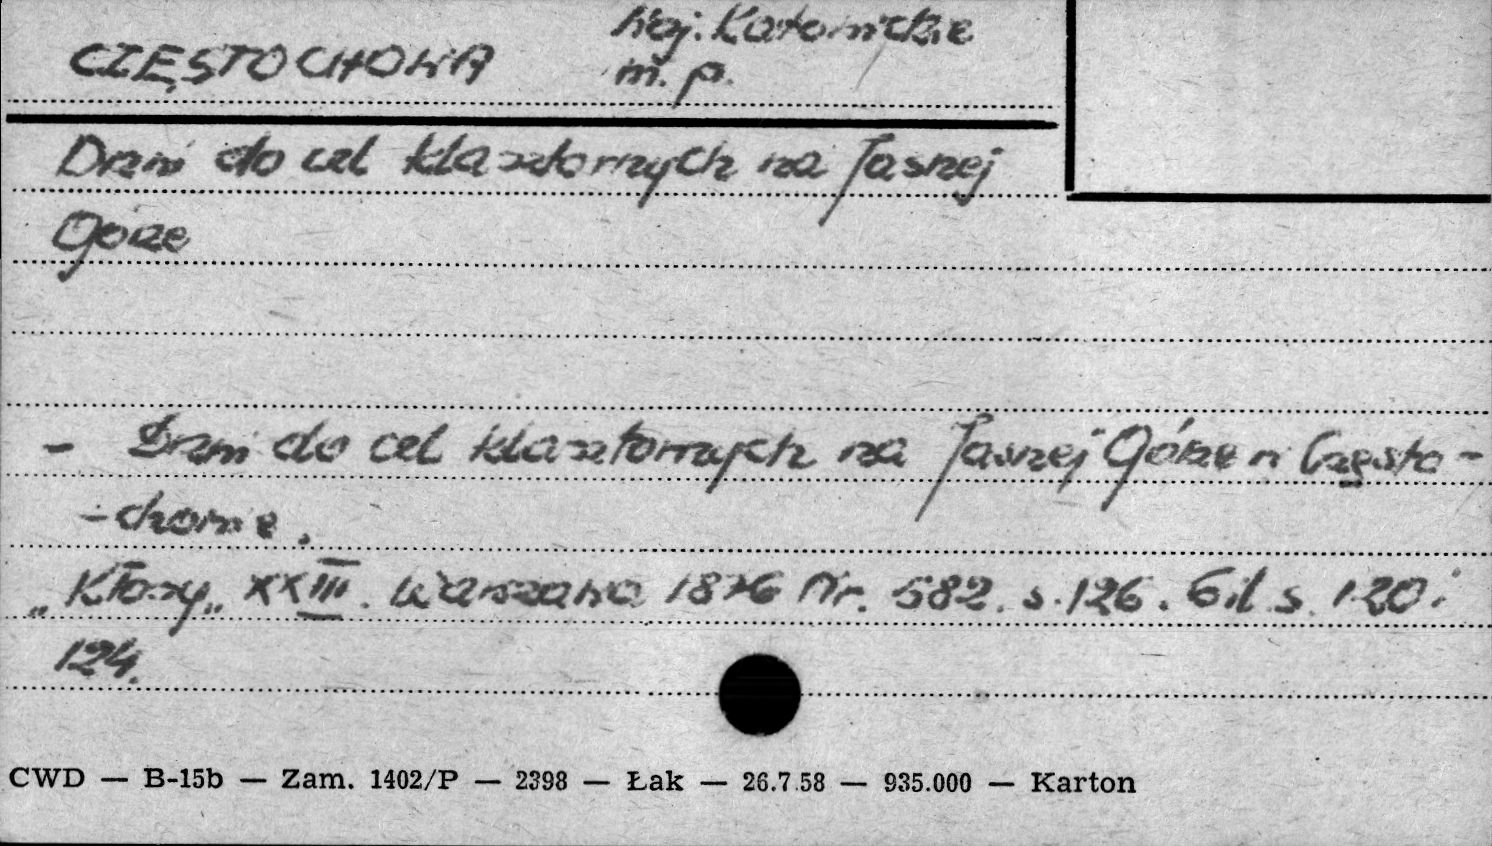 CZĘSTOCHOWA
Woj. Katowickie
m. p.
Drzwi do cel klasztornych na Jasnej
Górze
- Drzwi do cel klasztornych na Jasnej Górze w Często-
-chowie.
„Kłosy„ XXIII. Warszawa 1876 Nr. 582. s. 126. 6 il. s. 120 i
124.
CWD — B-15b — Zam. 1402/P — 2398 — Łak — 26.7.58 — 935.000 — Karton